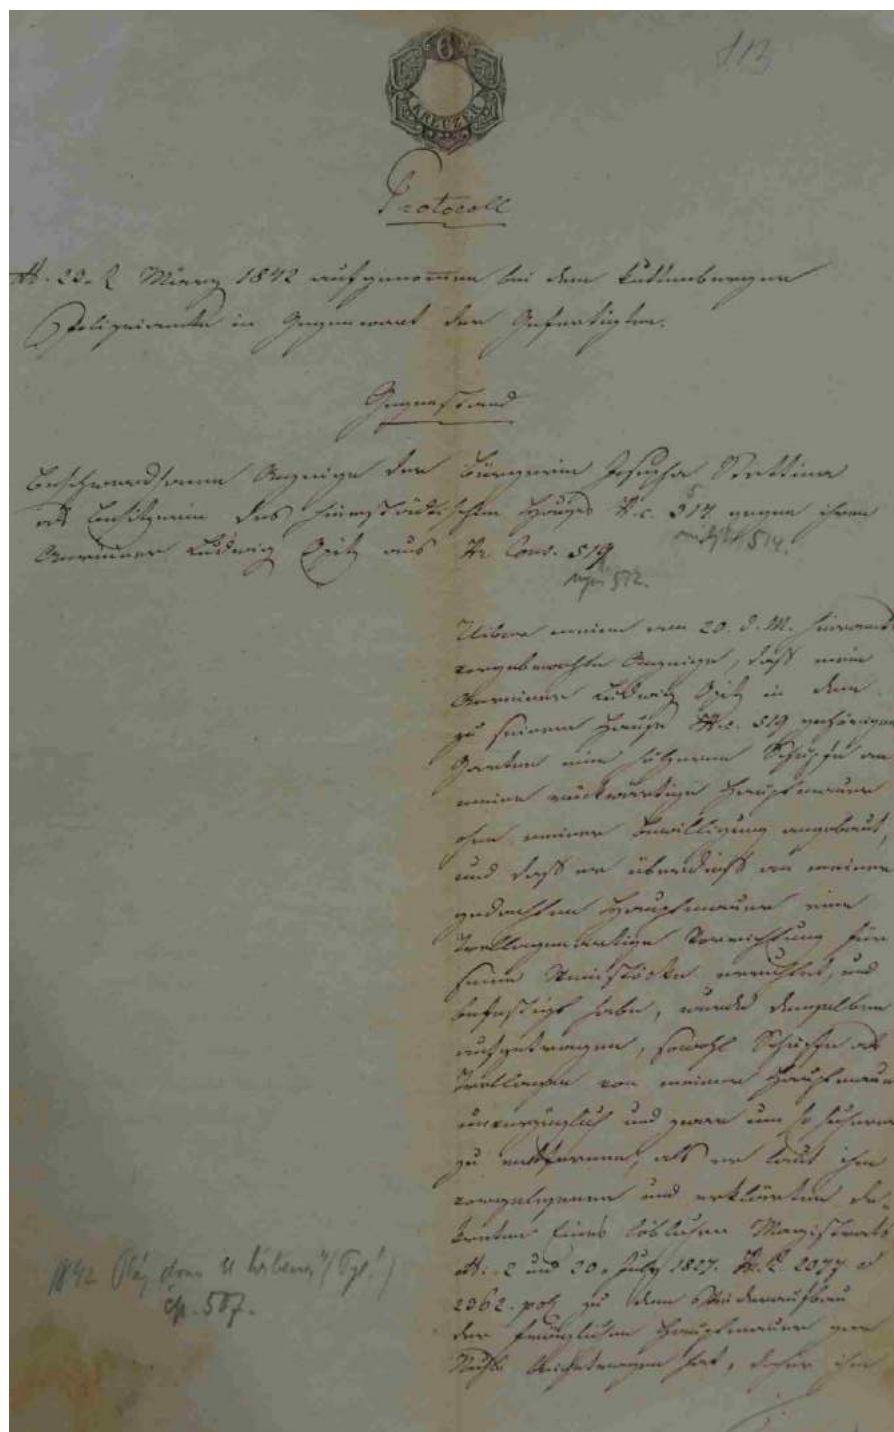 113
6
KREUZER
Protocoll
März 1842 aufgenommen bei dem Kuttenberger
Polizeiamte in Gegenwart der Gefertigten.
Gegenstand
Beschwerdsame Anzeige der Bürgerin Josepha Stettina
als Besitzerin des hierstädtischen Hauses N.c. 517 gegen ihren
Anrainer Ludwig Opitz aus Nr Cons. 519
514.
572.
Uiber meine am 20. d. M. hieramts
vorgebrachte Anzeige, daß mein
Anrainer Ludwig Opitz in dem
zu seinem Hause N.c. 519 gehörigen
Garten eine hölzerne Schupfe an
meine rückwärtige Hauptmauer
ohne meiner Bewilligung angebaut,
und daß er überdieß an meiner
gedachten Hauptmauer eine
artige Vorrichtung für
seine Weinstöcke errichtet, und
befestigt habe, wurde demselben
aufgetragen, sowohl Schupfe als
von meiner Hauptmauer
unverzüglich und zwar um so sicherer
zu entfernen, als er laut ihm
vorgelesenen und erklärten De-
kreten Eines löblichen Magistrats
2 und 20. July 1827. 2077 &
2362. pol zu dem Wiederaufbau
der fraglichen Hauptmauer gar
Nichts beigetragen hat, daher ihm
1842
čp. 507.